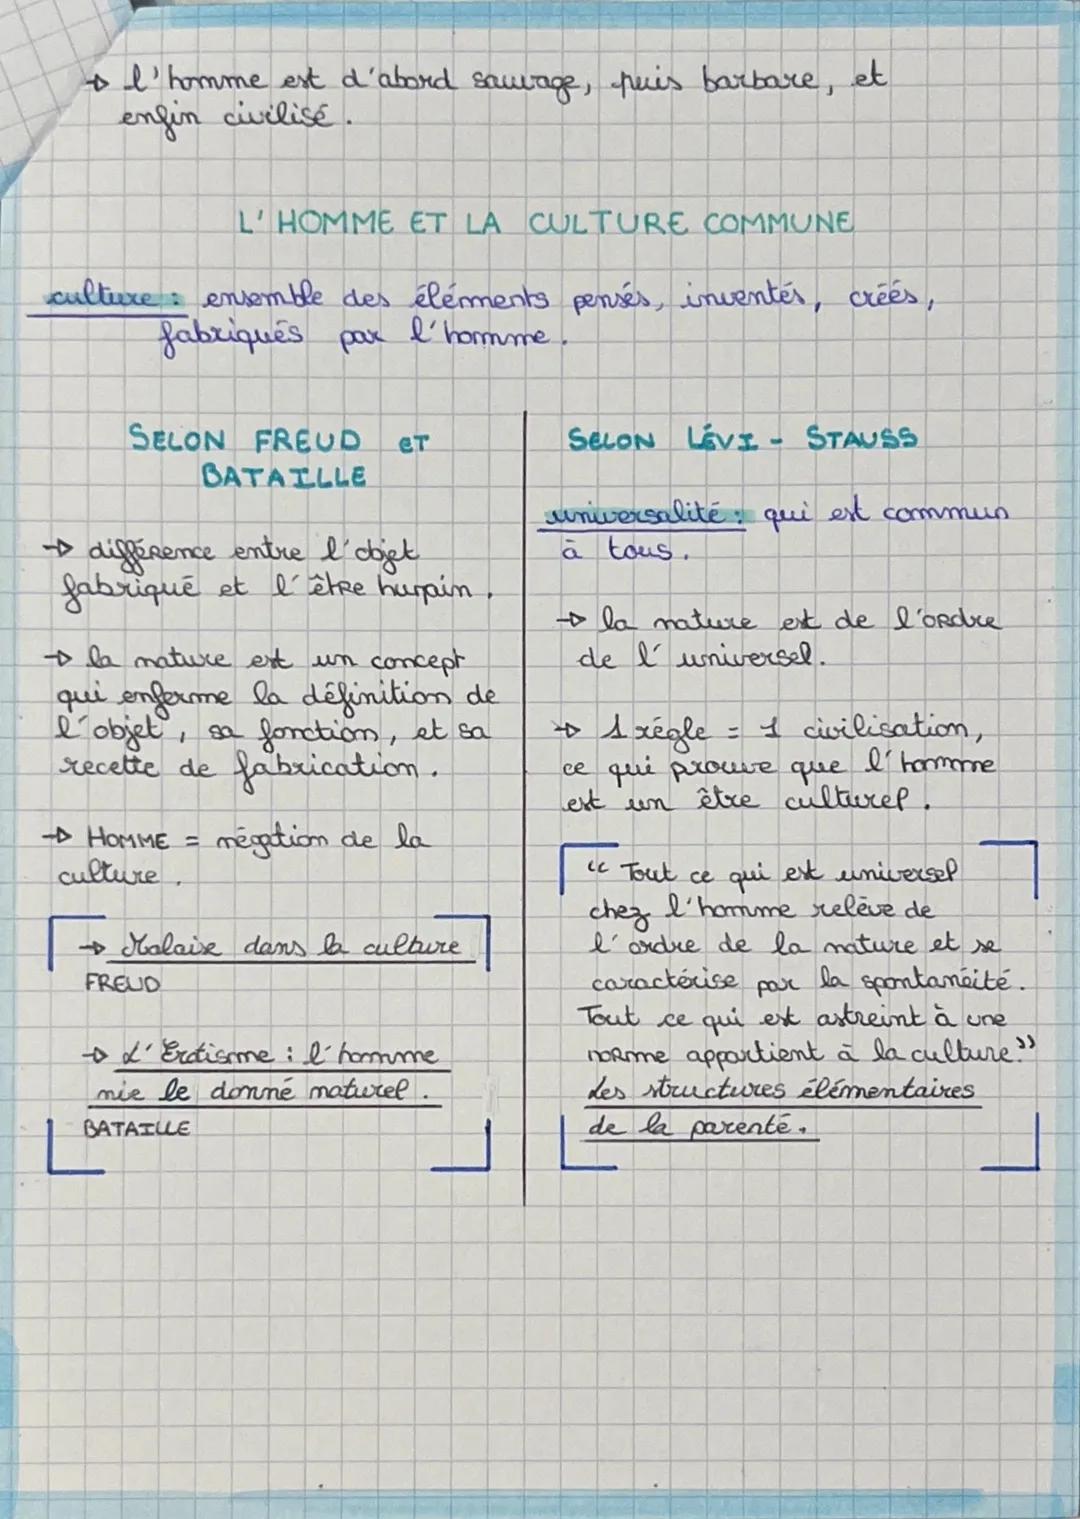 → l'homme est d'abord sauvage, puis barbare, et
enfin civilisé.
L'HOMME ET LA CULTURE COMMUNE
culture : ensemble des éléments pensés, inventés, créés,
fabriqués par l'homme.
SELON FREUD ET
BATAILLE
→ différence entre l'objet
fabriqué et l'être humain.
→ la nature est un concept
qui enferme la définition de
l'objet, sa fonction, et sa
recette de fabrication.
→ HOMME = négation de la
culture.
→ Malaise dans la culture
FREUD
→ L'Erotisme : l'homme
nie le donné naturel.
BATAILLE
SELON LÉVI - STAUSS
universalité : qui est commun
à tous.
→ la nature est de l'ordre
de l'universel.
→ 1 règle = 1 civilisation,
ce qui prouve que l'homme
est un être culturel.
“ Tout ce qui est universel
chez l'homme relève de
l'ordre de la nature et se
caractérise par la spontanéité.
Tout ce qui est astreint à une
norme appartient à la culture.”
Les structures élémentaires
de la parenté.